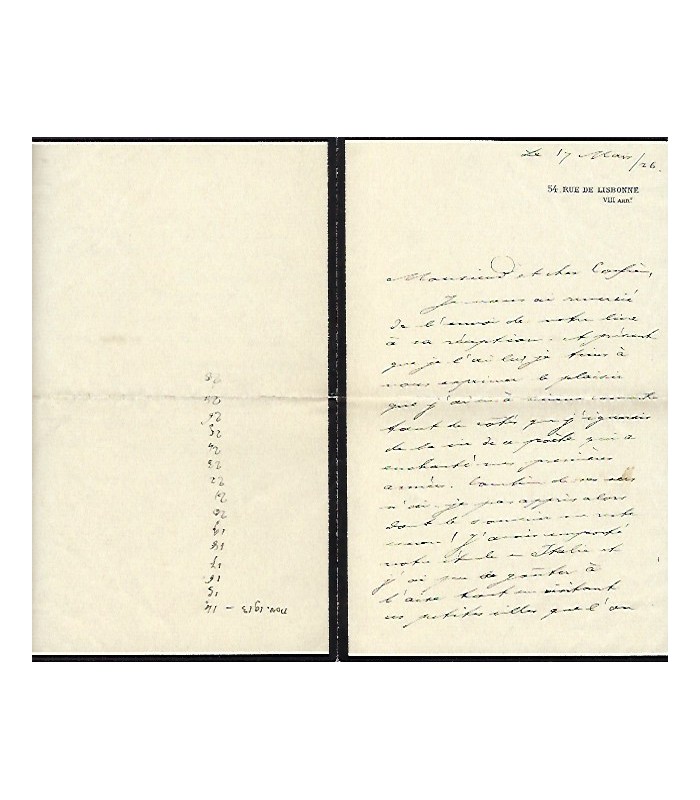 nov. 1913 – 14
15
16
17
18
19
20
21
22
23
24
25
26
27
28
Le 17 Mars /26.
54 RUE DE LISBONNE
VIII ARR.T
Monsieur et cher Confrère,
Je vous ai remercié
de l'envoi de votre livre
à sa réception. et présent
que je l'ai lu, je tiens à
vous exprimer le plaisir
que j'ai eu à
tant de que j'ignorais
de la vie de ce poète qui a
enchanté mes premières
années. Combien de ses vers
n'ai-je pas appris alors
dont le souvenir m'est
encore! J'avais emporté
votre étude en Italie et
j'ai pu la goûter à
l'aise tout en visitant
ces petites villes que l'on